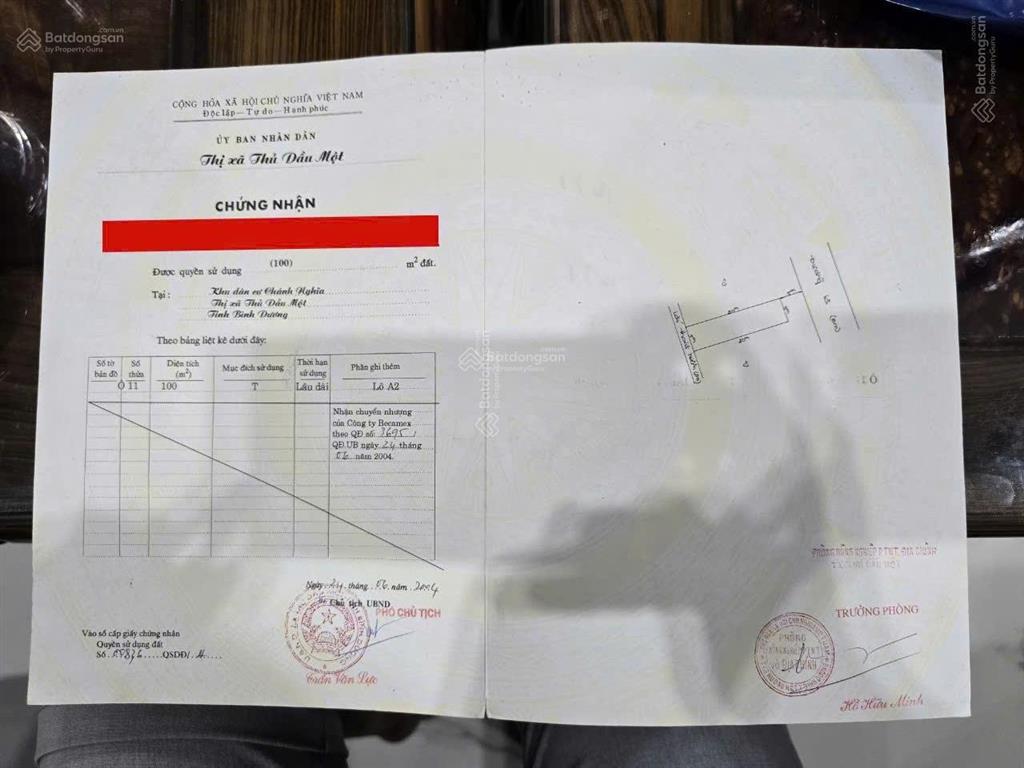 Batdongsan.com.vn
by PropertyGuru
CỘNG HÒA XÃ HỘI CHỦ NGHĨA VIỆT NAM
Độc lập — Tự do — Hạnh phúc
ỦY BAN NHÂN DÂN
Thị xã Thủ Dầu Một
CHỨNG NHẬN
Được quyền sử dụng (100) m² đất.
Tại : Khu dân cư Chánh Nghĩa
Thị xã Thủ Dầu Một
Tỉnh Bình Dương
Theo bảng liệt kê dưới đây:
Số tờ bản đồ
Số thửa
Diện tích (m²)
Mục đích sử dụng
Thời hạn sử dụng
Phần ghi thêm
Ô 11 100 T Lâu dài Lô A2
Nhận chuyển nhượng
của Công ty Becamex
theo QĐ số: 3695/
QĐ.UB ngày 24 tháng
06 năm 2004.
Ngày 24 tháng 06 năm 2004
Chủ tịch UBND
PHÓ CHỦ TỊCH
Vào sổ cấp giấy chứng nhận
Quyền sử dụng đất
Số QSDĐ/
Trần Văn Lực
Batdongsan
by PropertyGuru
Batdongsan.com.vn
by PropertyGuru
PHÒNG NÔNG NGHIỆP P.TNT, ĐỊA CHÍNH
T.X THỦ DẦU MỘT
TRƯỞNG PHÒNG
Hồ Hữu Minh